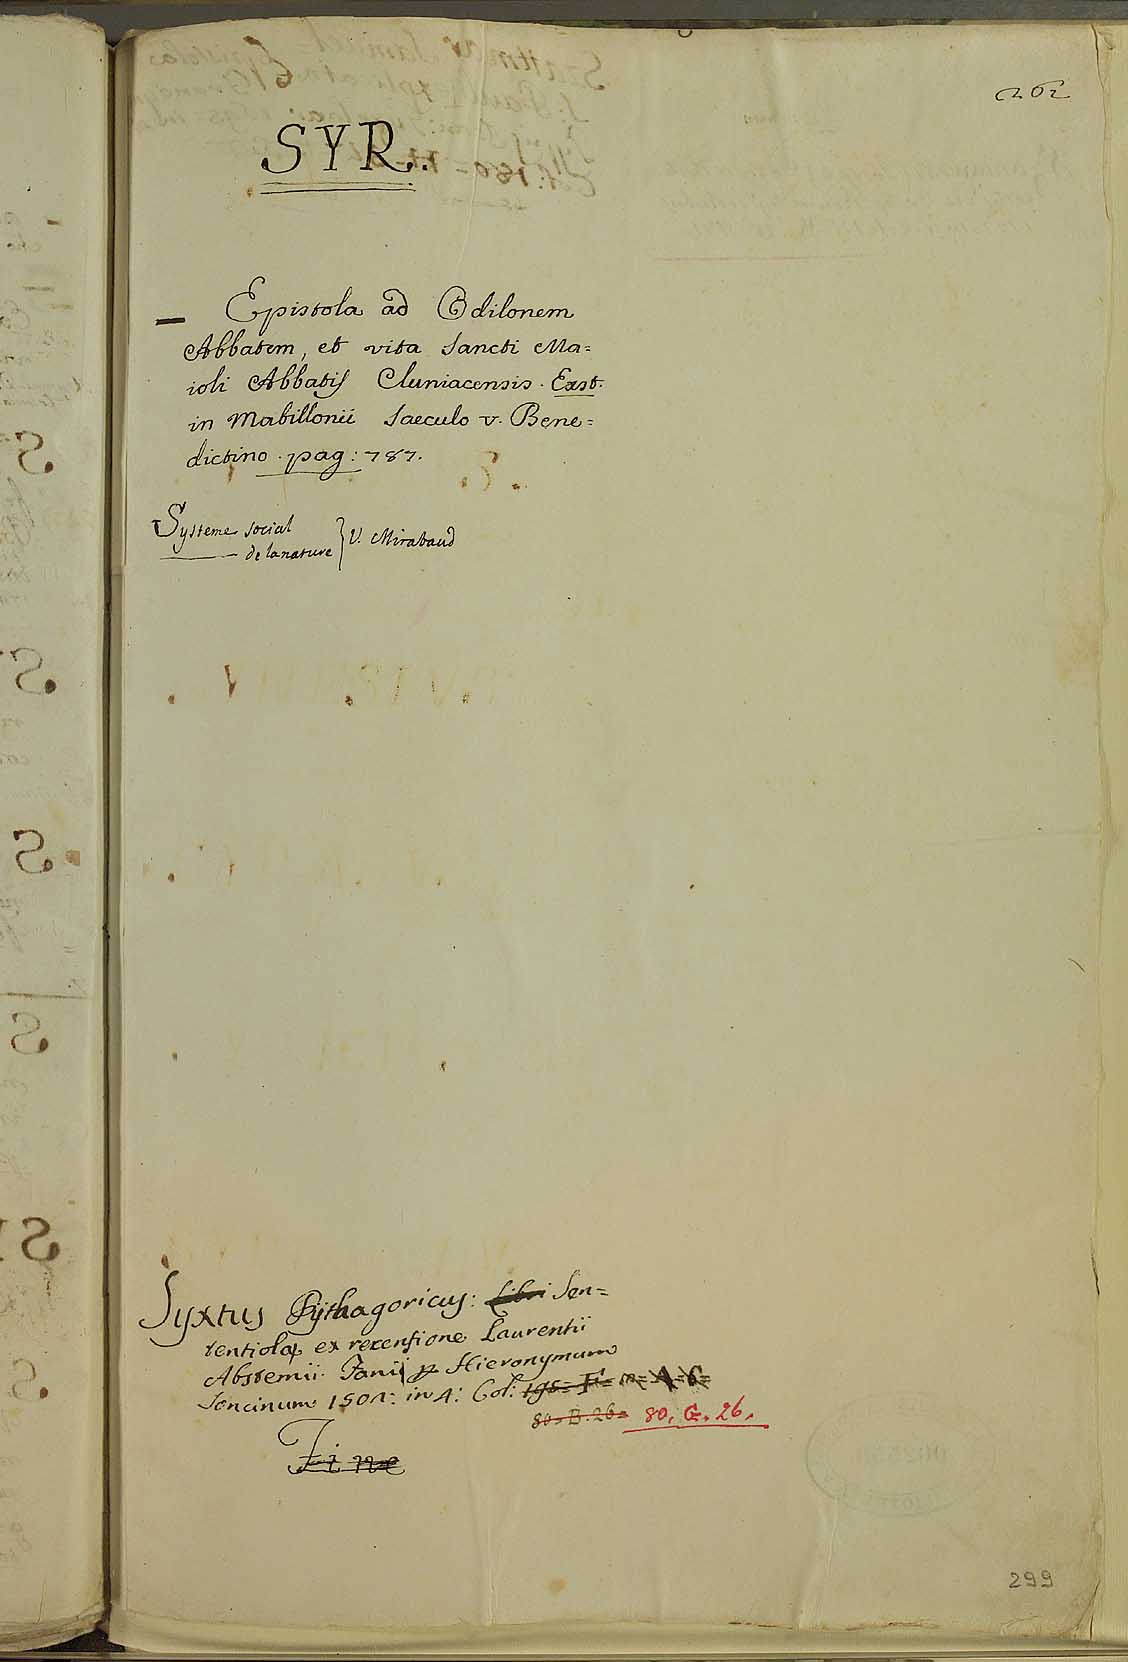 262
SYR.
— Epistola ad Odilonem
Abbatem, et vita Sancti Ma=
ioli Abbatis Cluniacensis. Exst.
in Mabillonii Saeculo v. Bene=
dictino. pag: 787.
Systeme social
——— de la nature } V. Mirabaud
Syxtus Pythagoricus: Libri Sen=
tentiolae ex recensione Laurentii
Abstemii. Fani p Hieronymum
Soncinum 1501: in 4: Col:
80. B. 26= 80. G. 26.
Fine
299